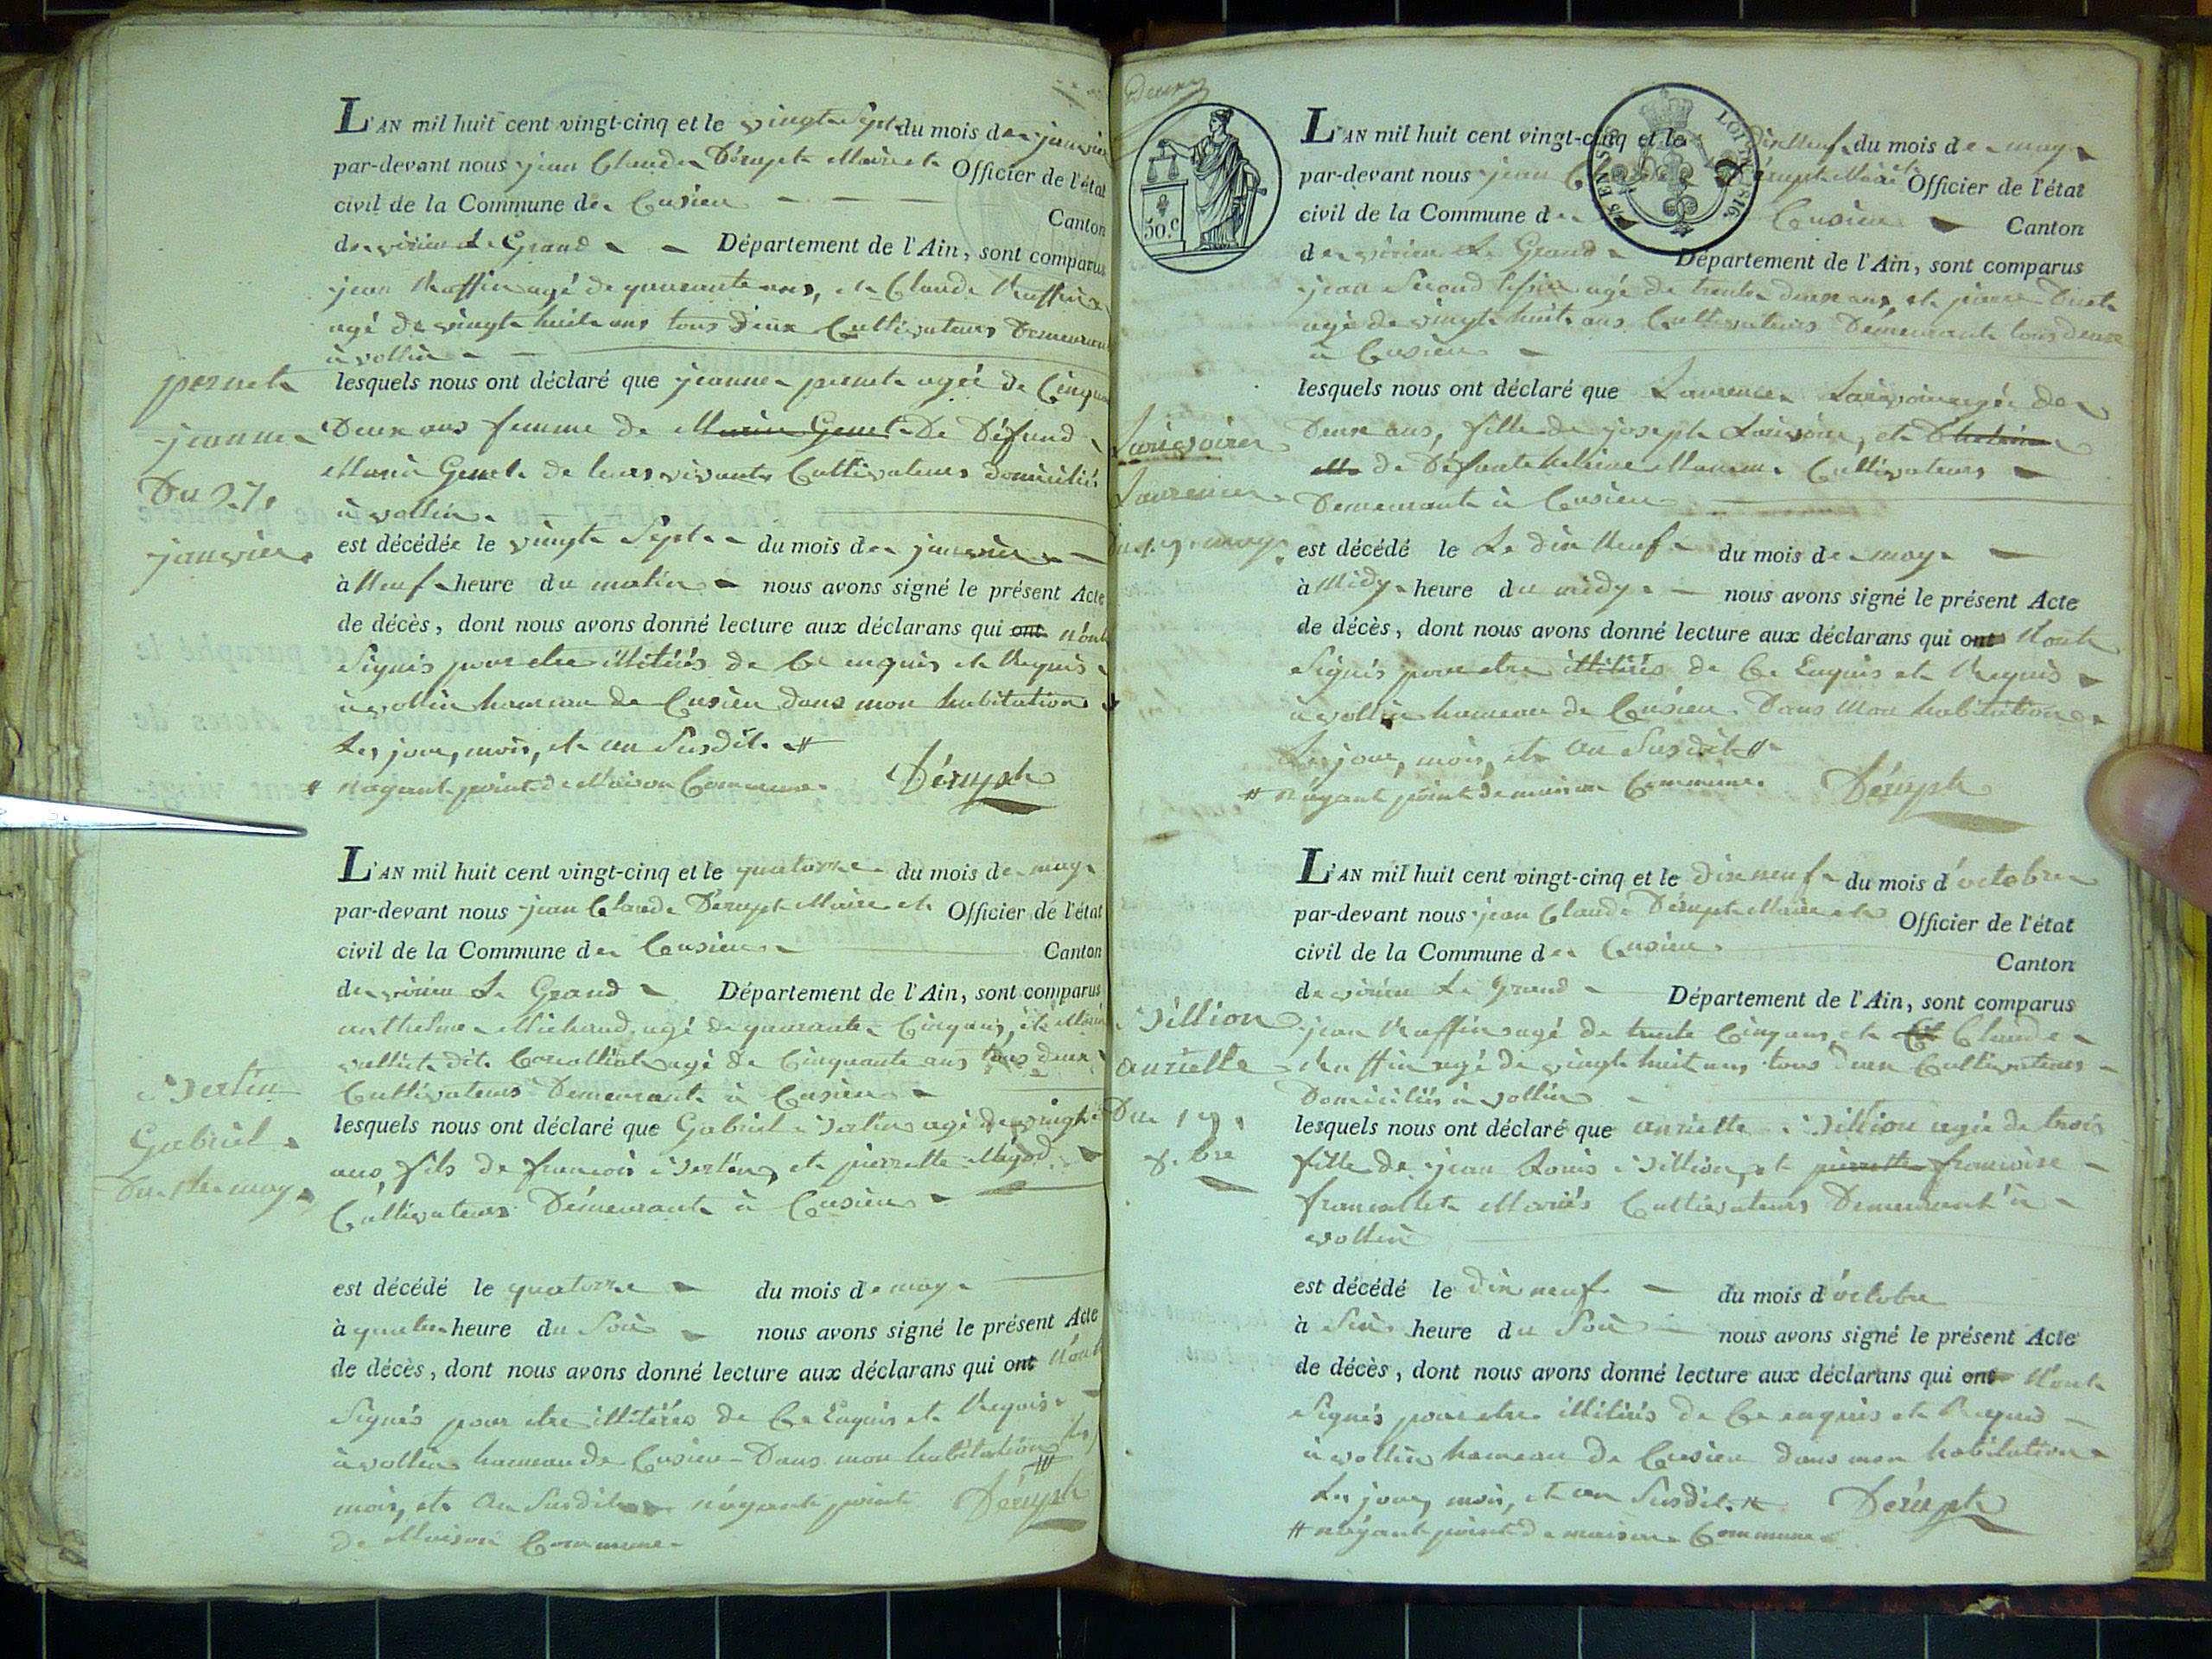 L'AN mil huit cent vingt-cinq et le vingt Sept du mois de janvier
par-devant nous jean Claude Dérupt Maire et Officier de l'état
civil de la Commune de Cusieu Canton
de virieu Le Grand Département de l'Ain, sont comparus
jean Ruffin agé de quarante ans, et Claude Ruffin
agé de vingt huit ans tous deux Cultivateurs Demeurant
à vollin
pernet
jeanne
Du 27
janvier
lesquels nous ont déclaré que jeanne pernet agée de Cinquante
Deux ans femme de Marin Genet De Défund
Marin Genet de leurs vivants Cultivateurs domiciliés
à vollin
est décédée le vingt Sept du mois de janvier
à Neuf heure du matin nous avons signé le présent Acte
de décès, dont nous avons donné lecture aux déclarans qui ont N'ont
Signés pour etre illitérés de Ce enquis et Requis
à vollin hameau de Cusieu dans mon habitation
Les jour, mois, et an Susdit #
# N'ayant point de Maison Commune. Dérupt
L'AN mil huit cent vingt-cinq et le quatorze du mois de may
par-devant nous jean Claude Dérupt Maire et Officier de l'état
civil de la Commune de Cusieu Canton
de virieu Le Grand Département de l'Ain, sont comparus
anthelme Michaud agé de quarante Cinq ans, et
dit agé de Cinquante ans tous deux
Cultivateurs Demeurant à Cusieu
Gabriel
may
lesquels nous ont déclaré que Gabriel agé de vingt
ans, fils de francois et pierrette
Cultivateurs Démeurant à Cusieu
est décédé le quatorze du mois de may
à quatre heure du Soir nous avons signé le présent Acte
de décès, dont nous avons donné lecture aux déclarans qui ont N'ont
Signés pour etre illitérés de Ce Enquis et Requis
à vollin hameau de Cusieu Dans mon habitation
mois, et An Susdit n'ayant point Dérupt
de Maison Commune
50.c
L'AN mil huit cent vingt-cinq et le Dix Neuf du mois de may
LOI DE 1816
par-devant nous jean Claude Dérupt Maire et Officier de l'état
civil de la Commune de Cusieu Canton
de virieu Le Grand Département de l'Ain, sont comparus
jean Second agé de trente deux ans, et pierre
agé de vingt huit ans Cultivateurs Démeurant tous deux
à Cusieu
Laurence
du 19 may
lesquels nous ont déclaré que Laurence agée de
Deux ans, fille de joseph et
de Défunte Cultivateurs
Demeurant à Cusieu
est décédé le Le dix Neuf du mois de may
à Midy heure du midy nous avons signé le présent Acte
de décès, dont nous avons donné lecture aux déclarans qui ont N'ont
Signés pour etre illitérés de Ce Enquis et Requis
à vollin hameau de Cusieu Dans Mon habitation
Les jour, mois, et An Susdit #
# n'ayant point de maison Commune. Dérupt
L'AN mil huit cent vingt-cinq et le Dix neuf du mois d'octobre
par-devant nous jean Claude Dérupt Maire et Officier de l'état
civil de la Commune de Cusieu Canton
de virieu Le Grand Département de l'Ain, sont comparus
jean Ruffin agé de trente Cinq ans, et Claude
Ruffin agé de vingt huit ans tous deux Cultivateurs
Domiciliés à vollin
anriette
Du 19
8.bre
lesquels nous ont déclaré que anriette agée de trois
fille de jean Louis et pierrette francoise
Mariés Cultivateurs Demeurant à
vollin
est décédé le dix neuf du mois d'octobre
à Six heure du Soir nous avons signé le présent Acte
de décès, dont nous avons donné lecture aux déclarans qui ont N'ont
Signés pour etre illitérés de Ce enquis et Requis
à vollin hameau de Cusieu dans mon habitation
Les jour, mois, et an Susdit # Dérupt
# n'ayant point de maison Commune